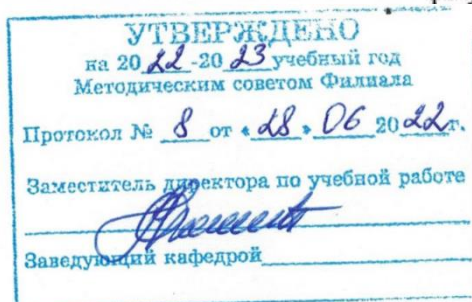 УТВЕРЖДЕНО
на 2022-2023 учебный год
Методическим советом Филиала
Протокол № 8 от «28» 06 2022г.
Заместитель директора по учебной работе
Заведующий кафедрой